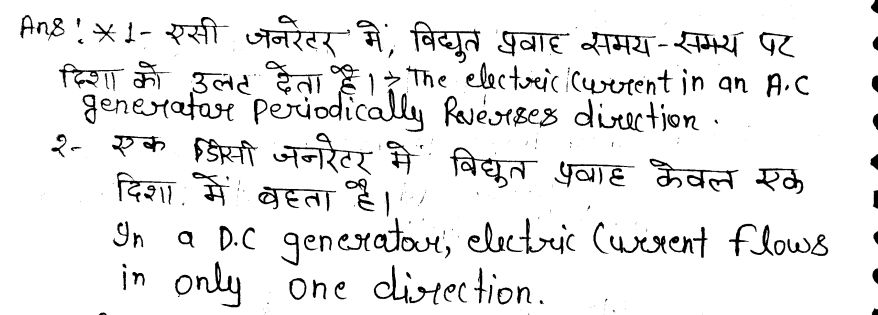 Ans: * 1- एसी जनरेटर में, विद्युत प्रवाह समय-समय पर
दिशा को उलट देता है। → The electric current in an A.C
generator periodically Reverses direction.
२- एक डिसी जनरेटर में विद्युत प्रवाह केवल एक
दिशा में बहता है।
In a D.C generator, electric current flows
in only one direction.